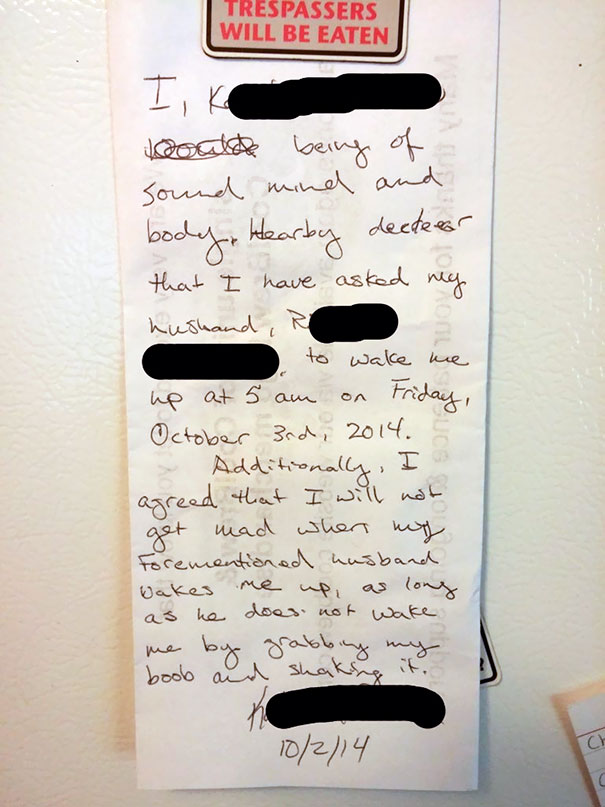 TRESPASSERS
WILL BE EATEN
I, K
being of
sound mind and
body, Hearby
that I have asked my
husband, Ri
to wake me
up at 5 am on Friday,
October 3rd, 2014.
Additionally, I
agreed that I will not
get mad when my
Forementioned husband
wakes me up, as long
as he does not wake
me by grabbing my
boob and shaking it.
K
10/2/14